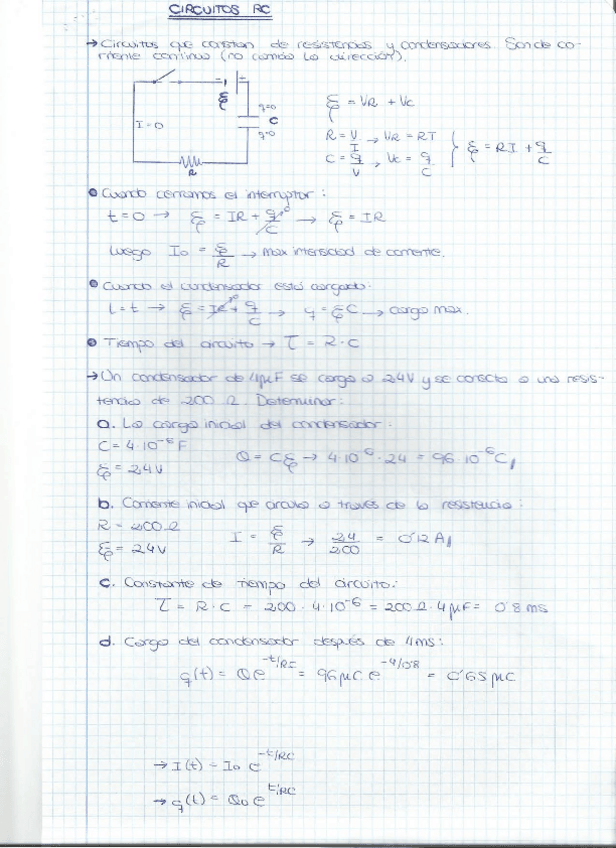 CIRCUITOS RC
→ Circuitos que constan de resistencias y condensadores. Son de co-
rriente continua (no cambia la dirección).
I=0
ξ
q=0
C
q=0
R
ξ = VR + Vc
R = V/I → VR = RI
C = q/V , Vc = q/C } ξ = RI + q/C
• Cuando cerramos el interruptor:
t=0 → ξ = IR + q/C⁰ → ξ = IR
luego I₀ = ξ/R → max intensidad de corriente.
• Cuando el condensador está cargado:
t=t → ξ = IR⁰ + q/C → q = ξC → carga max.
• Tiempo del circuito → τ = R·C
→ Un condensador de 4μF se carga a 24V y se conecta a una resis-
tencia de 200 Ω. Determinar:
a. La carga inicial del condensador:
C = 4·10⁻⁶ F
ξ = 24V
Q = Cξ → 4·10⁻⁶·24 = 96·10⁻⁶ C
b. Corriente inicial que circula a través de la resistencia:
R = 200Ω
ξ = 24V
I = ξ/R → 24/200 = 0'12 A
c. Constante de tiempo del circuito:
τ = R·C = 200·4·10⁻⁶ = 200Ω·4μF = 0'8 ms
d. Carga del condensador después de 4ms:
q(t) = Q e^-t/RC = 96μC e^-4/0'8 = 0'65 μC
→ I(t) = I₀ e^-t/RC
→ q(t) = Q₀ e^t/RC